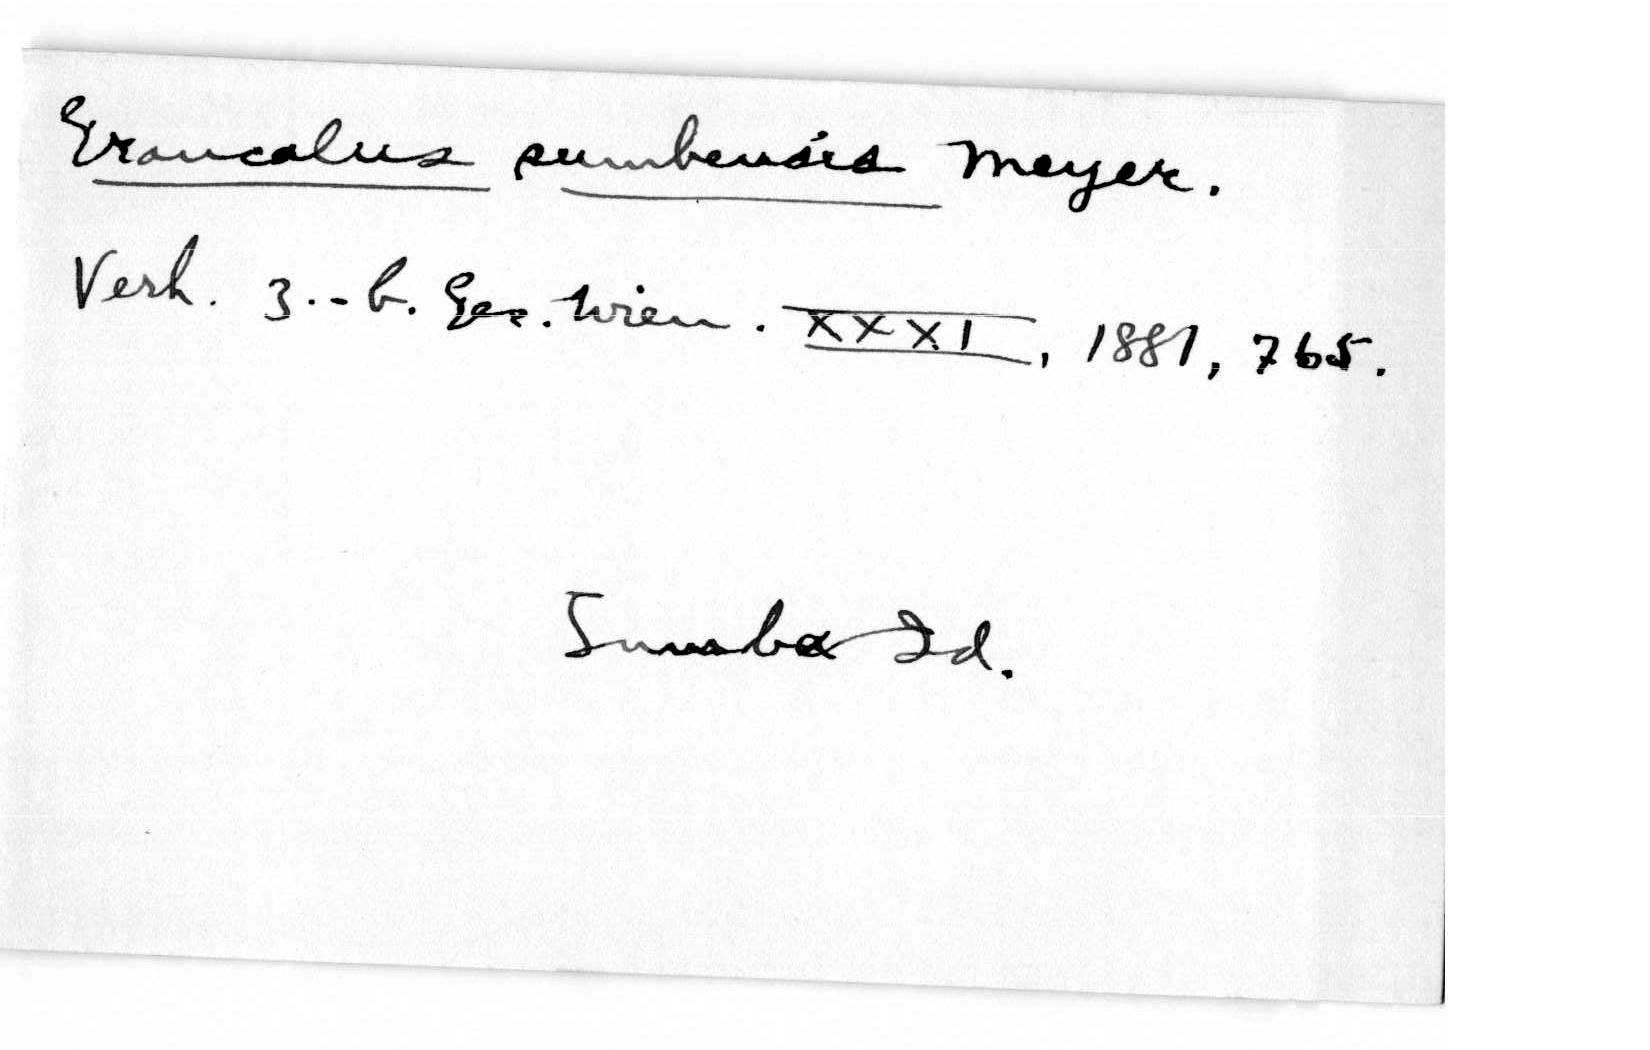 Graucalus sumbensis Meyer.
Verh. z.-b. Ges. Wien. XXXI, 1881, 765.
Sumba Id.